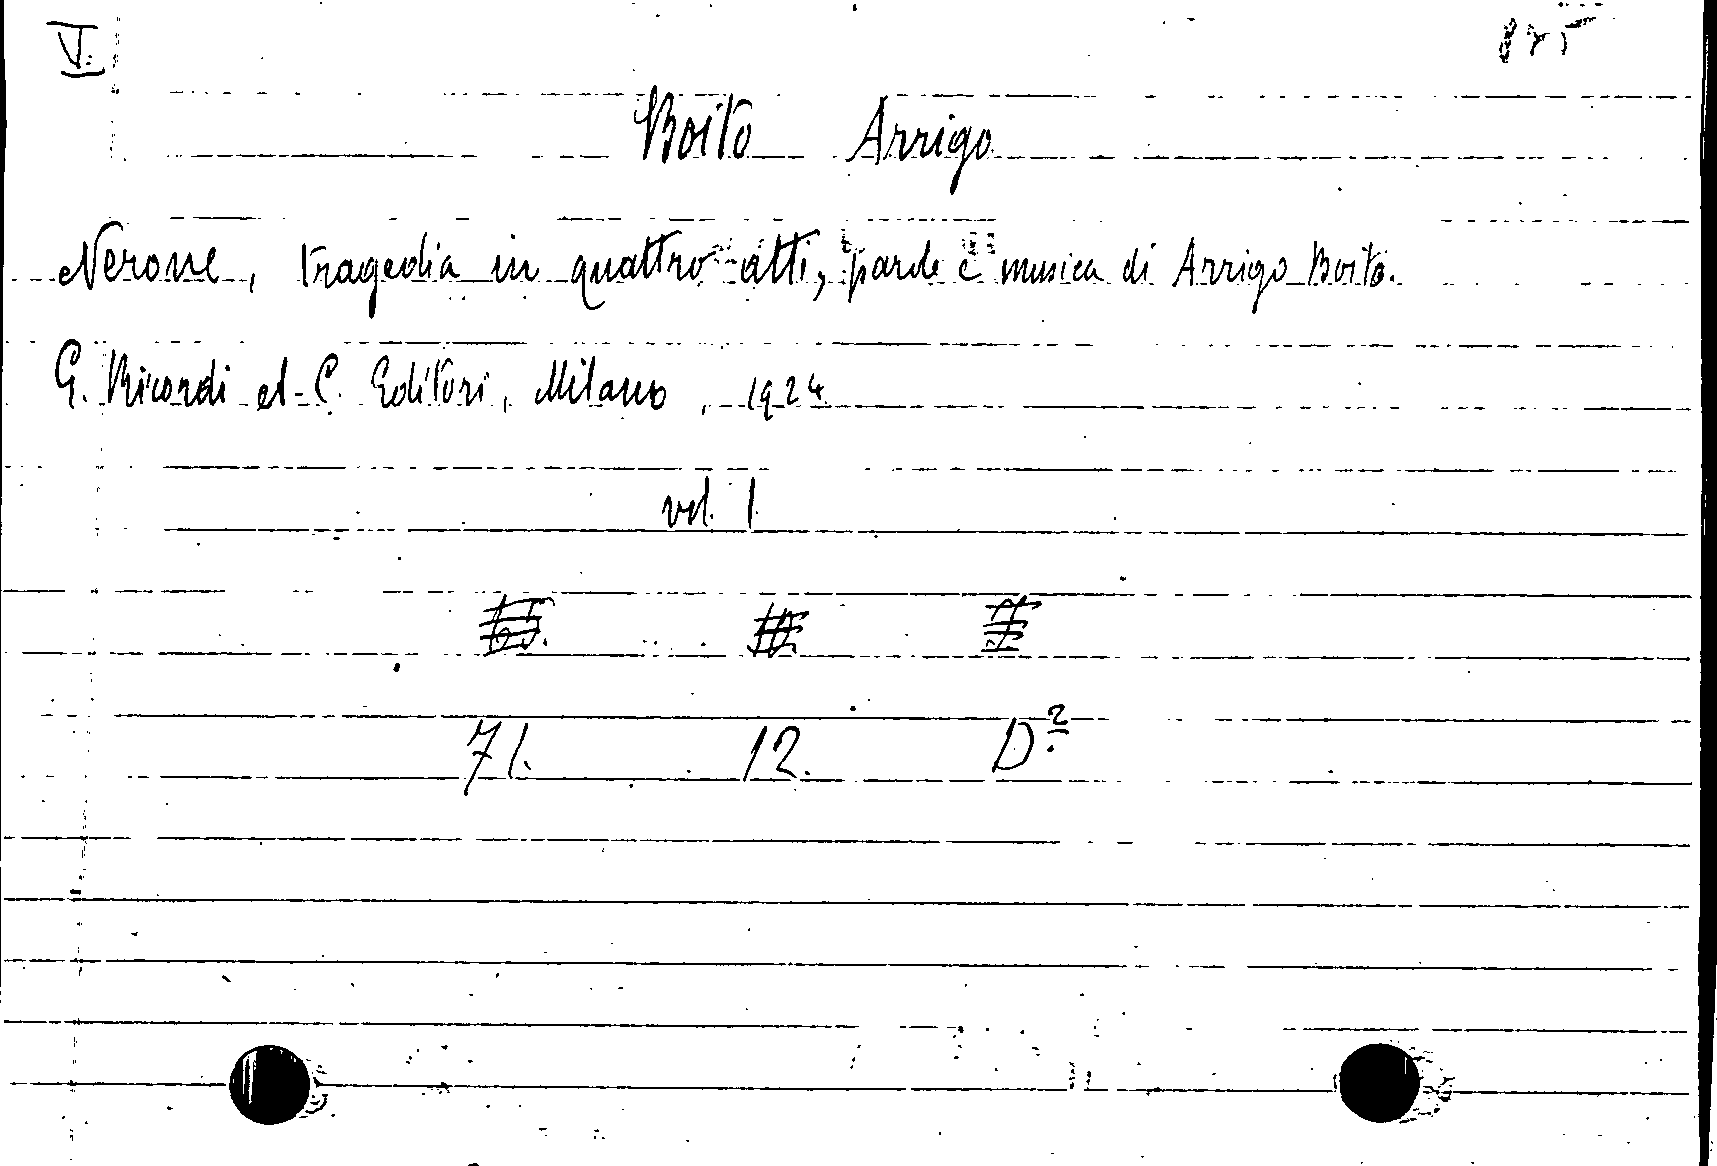 V. 875
Boito Arrigo
Nerone, tragedia in quattro atti, parole e musica di Arrigo Boito.
G. Ricordi et C. Editori, Milano, 1924
vol. 1.
71. 12. D²